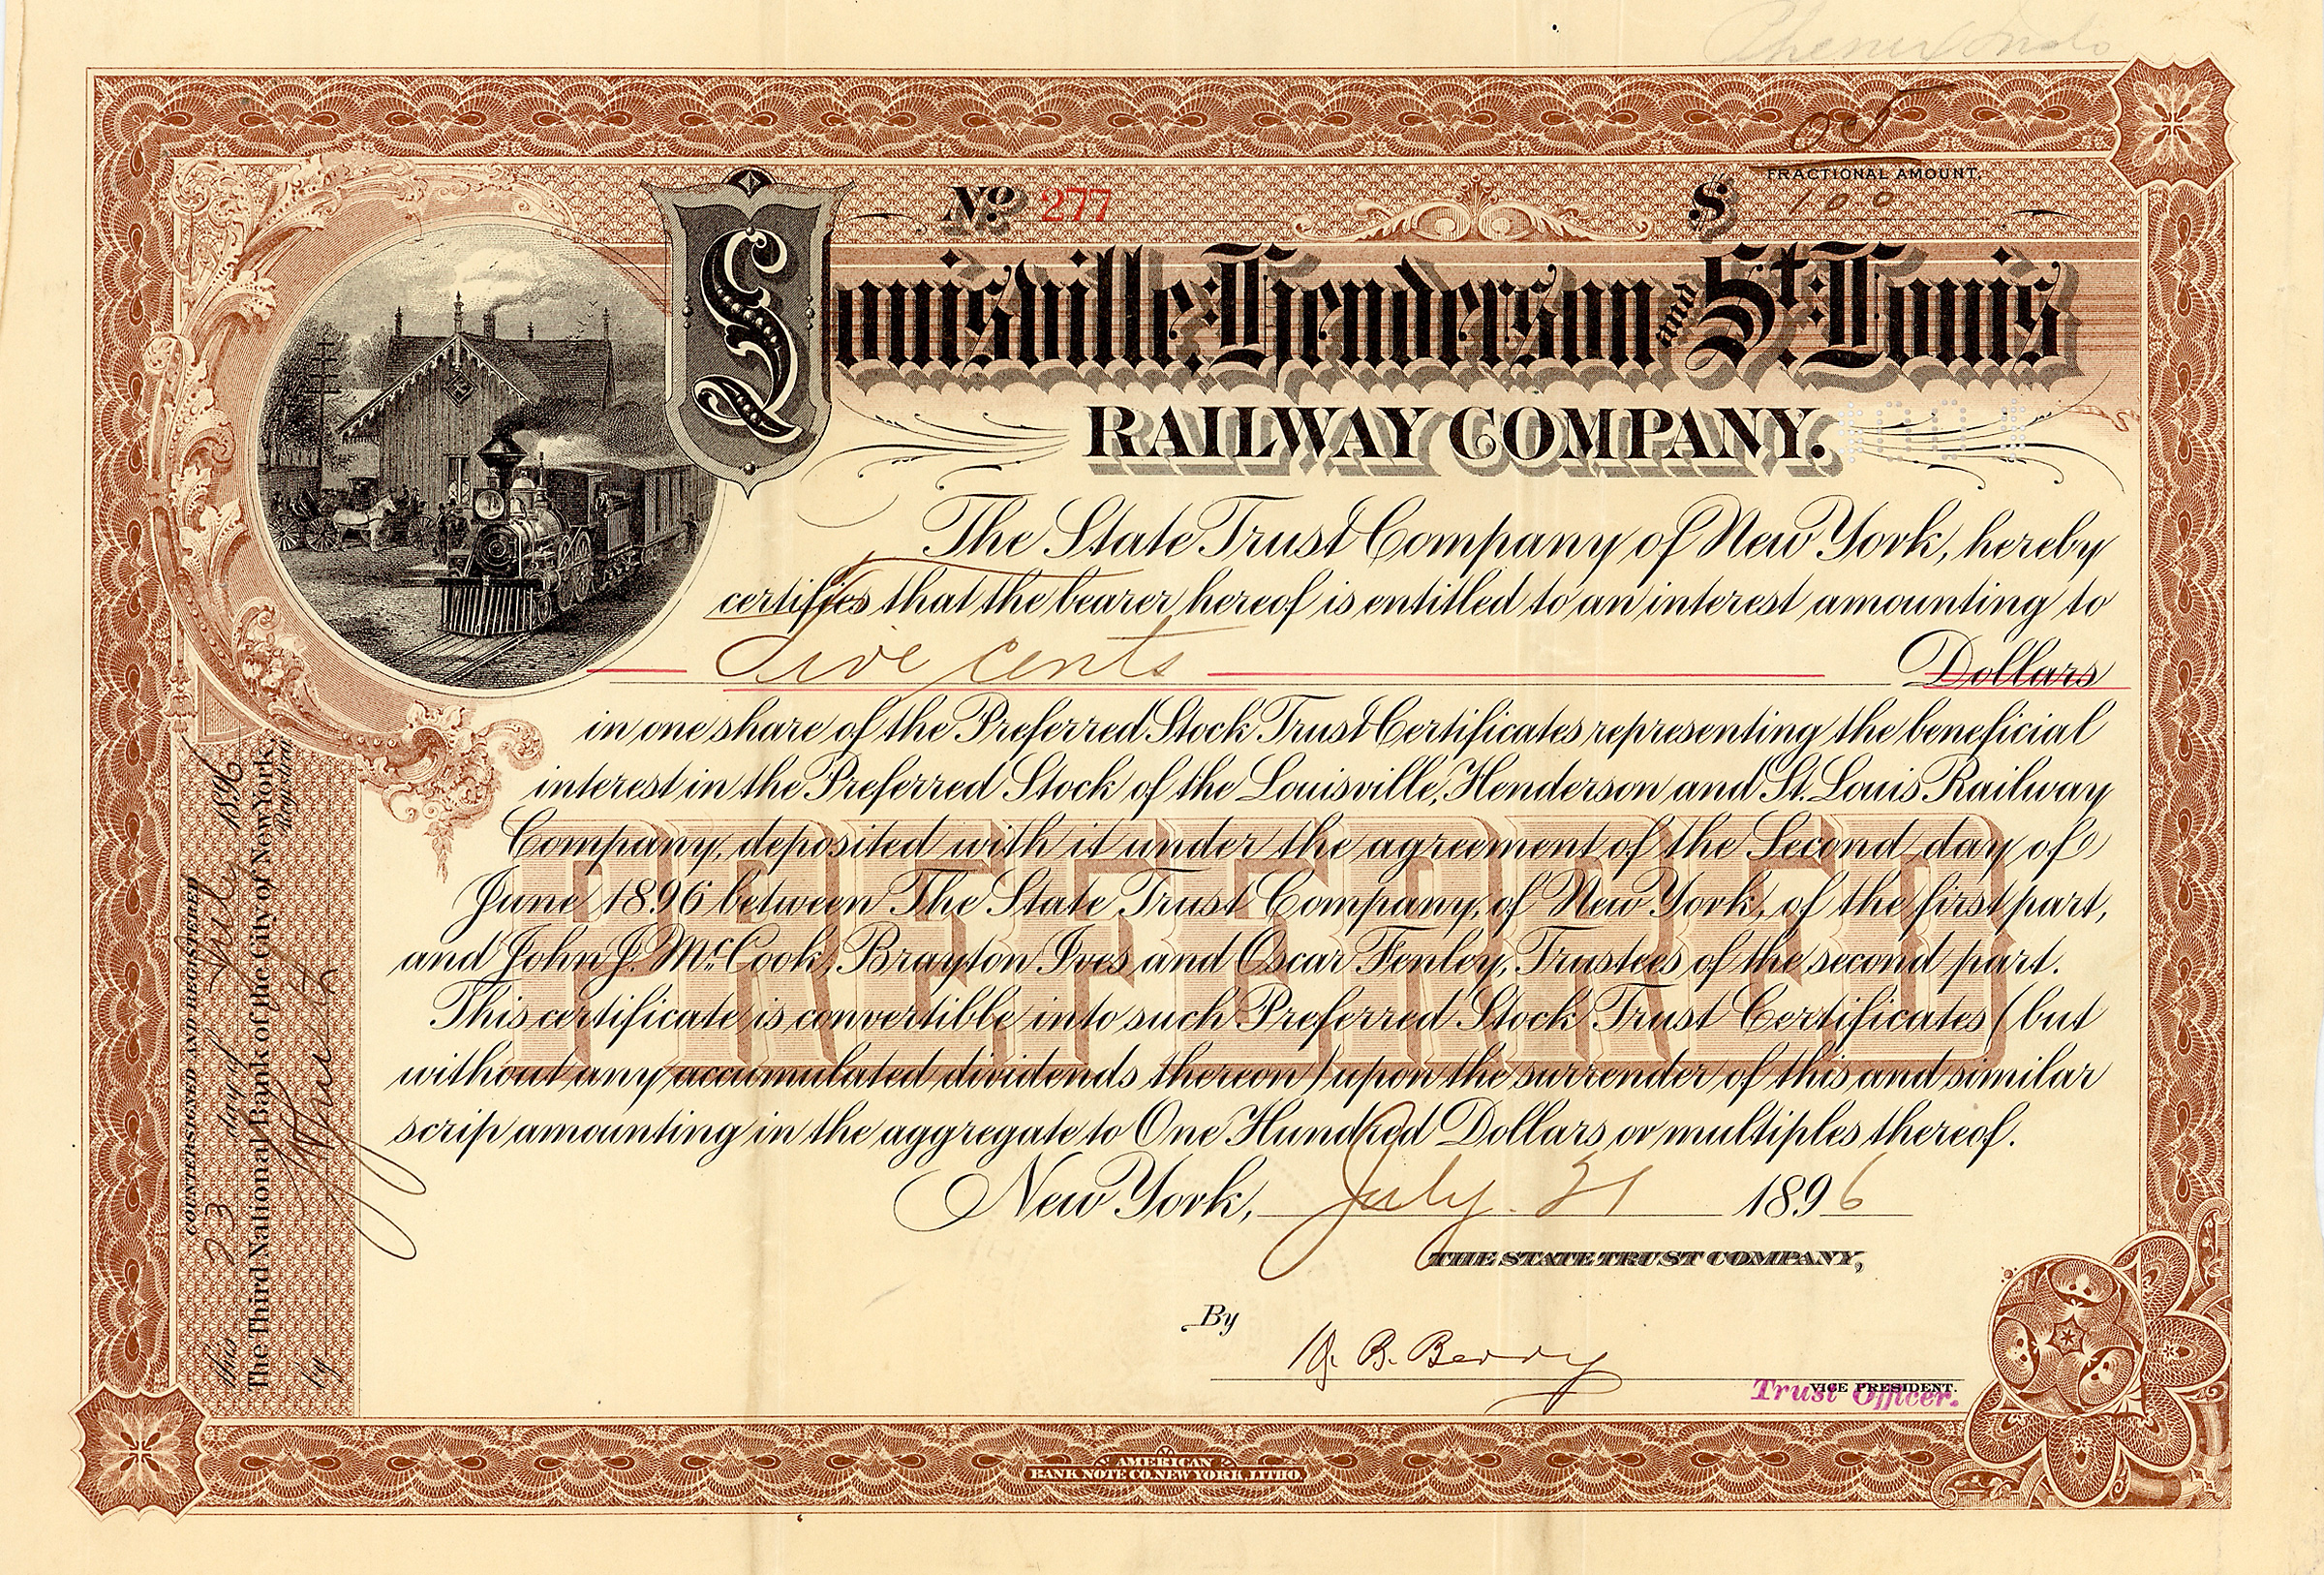 05
FRACTIONAL AMOUNT.
No. 277 $ 100
Louisville, Henderson and St. Louis
RAILWAY COMPANY.
The State Trust Company of New York, hereby
certifies that the bearer hereof is entitled to an interest amounting to
Five cents Dollars
in one share of the Preferred Stock Trust Certificates representing the beneficial
interest in the Preferred Stock of the Louisville, Henderson and St. Louis Railway
Company, deposited with it under the agreement of the Second day of
June 1896 between The State Trust Company, of New York, of the first part,
and John J. McCook, Brayton Ives and Oscar Fenley, Trustees of the second part.
This certificate is convertible into such Preferred Stock Trust Certificates (but
without any accumulated dividends thereon) upon the surrender of this and similar
scrip amounting in the aggregate to One Hundred Dollars or multiples thereof.
PREFERRED
New York, July 21 1896
THE STATE TRUST COMPANY,
By
B. Berry
VICE PRESIDENT.
Trust Officer.
COUNTERSIGNED AND REGISTERED
this 23 day of July 1896
The Third National Bank of the City of New York,
Registrar
by
AMERICAN
BANK NOTE CO. NEW YORK, LITHO.